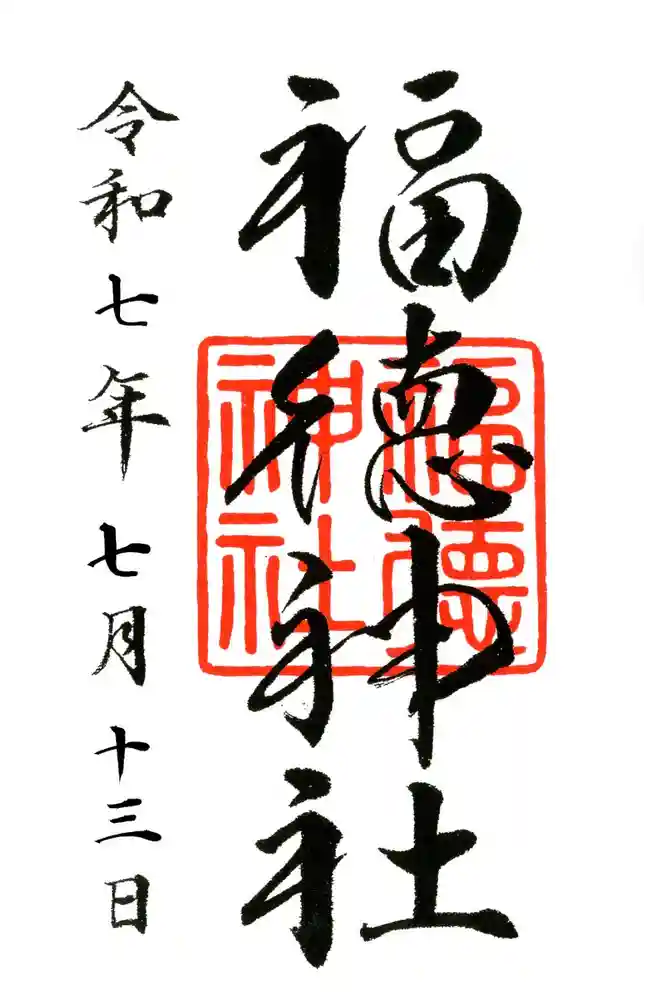 福徳神社
福徳神社
令和七年七月十三日